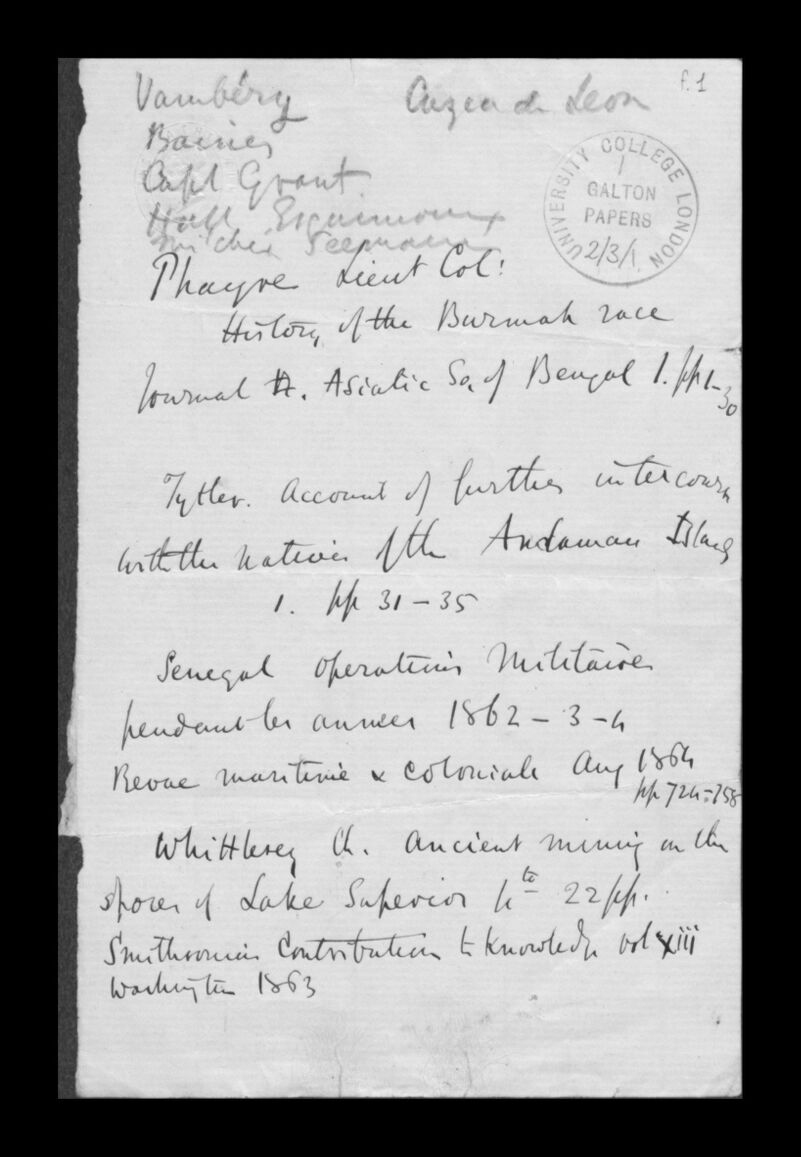 f.1
Vambéry Cuzea de Leon
Baines
Capt Grant
Hall Esquimaux
Michie Seemann
UNIVERSITY COLLEGE LONDON
1
GALTON
PAPERS
2/3/1
Phayre Lieut Col:
History of the Burmah race
Journal A. Asiatic So. of Bengal 1. pp 1-30
Tytler. Account of further intercourse
with the natives of the Andaman Islands
1. pp 31-35
Senegal operations Militaires
pendant les annees 1862-3-4
Revue maritime & coloniale Aug 1864
pp 724-758
Whittlesey Ch. Ancient mining on the
shores of Lake Superior 4to 22 pp.
Smithsonian Contributions to Knowledge vol xiii
Washington 1863